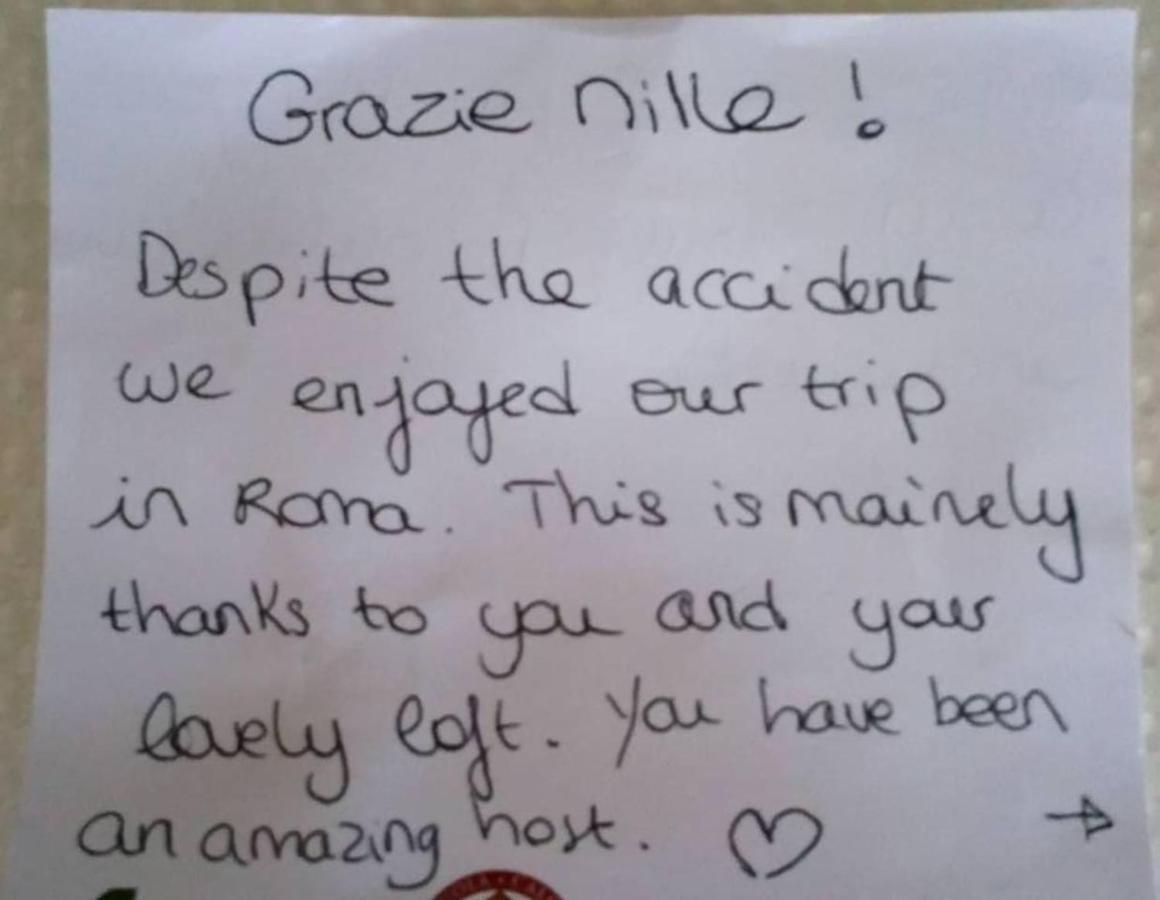 Grazie Mille!
Despite the accident
we enjoyed our trip
in Roma. This is mainely
thanks to you and your
lovely loft. You have been
an amazing host. ♡ →